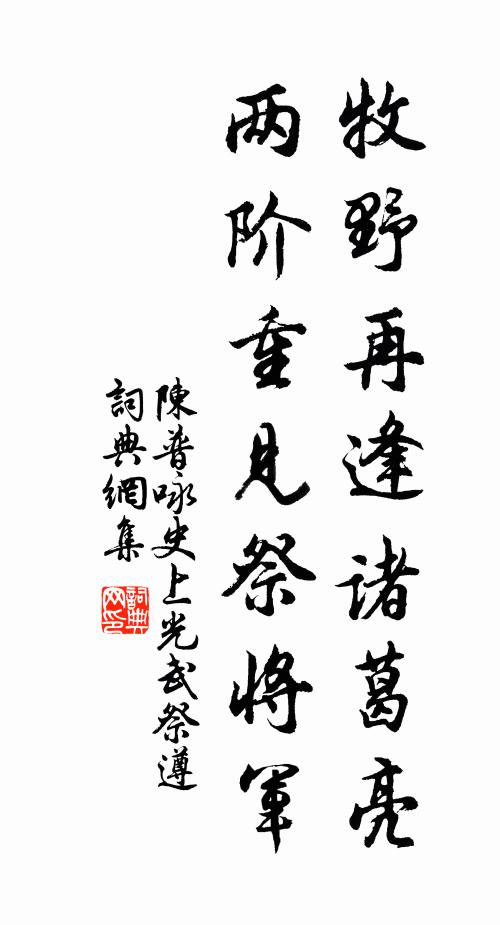 牧野再逢诸葛亮
两阶重见祭将军
陳普咏史上光武祭遵
詞典網集
詞典
网印